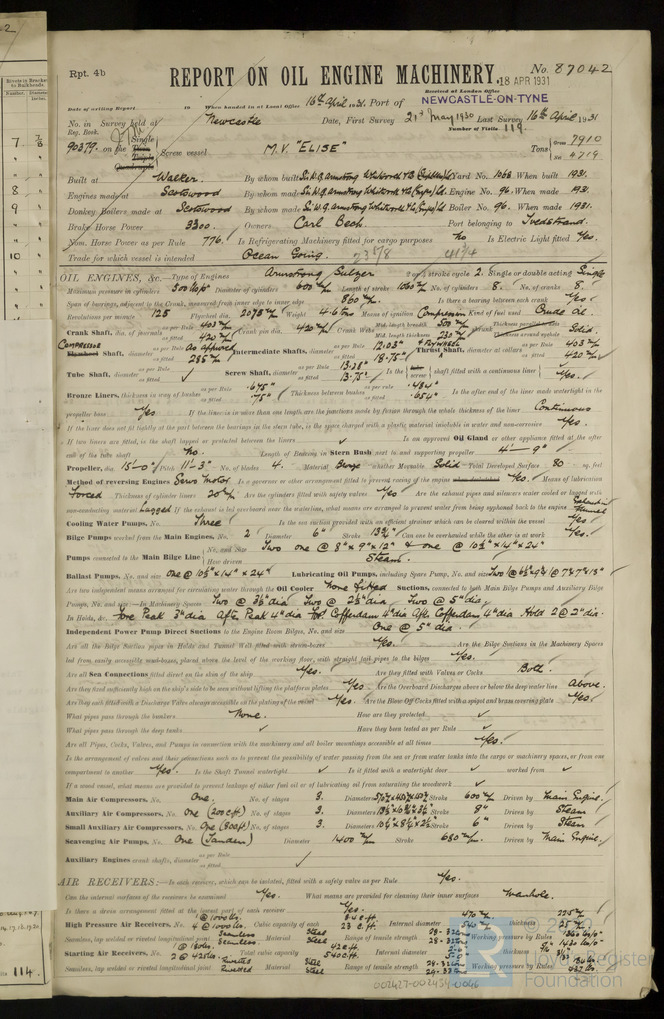 Rpt. 4b
REPORT ON OIL ENGINE MACHINERY.
No. 87042
18 APR 1931
Received at London Office
Date of writing Report
When handed in at Local Office 16th April 1931 Port of NEWCASTLE-ON-TYNE
No. in Survey held at Newcastle Date, First Survey 21st May 1930 Last Survey 16th April 1931
Reg. Book. Number of Visits 119
90379. on the Single Screw vessel M.V. "ELISE" Tons Gross 7910 Net 4719
Built at Walker. By whom built Sir W.G. Armstrong Whitworth & Co Yard No. 1068 When built 1931.
Engines made at Scotswood By whom made Sir W.G. Armstrong Whitworth & Co Engine No. 96. When made 1931.
Donkey Boilers made at Scotswood By whom made Sir W.G. Armstrong Whitworth & Co Boiler No. 96. When made 1931.
Brake Horse Power 3300. Owners Carl Bech. Port belonging to Tvedestrand.
Nom. Horse Power as per Rule 776. Is Refrigerating Machinery fitted for cargo purposes No Is Electric Light fitted Yes.
Trade for which vessel is intended Ocean Going.
OIL ENGINES, &c.—Type of Engines Armstrong Sulzer 2 or 4 stroke cycle 2. Single or double acting Single
Maximum pressure in cylinders 500 lbs Diameter of cylinders 600 m/m Length of stroke 1060 m/m No. of cylinders 8. No. of cranks 8.
Span of bearings, adjacent to the Crank, measured from inner edge to inner edge 860 m/m Is there a bearing between each crank Yes
Revolutions per minute 125 Flywheel dia. 2075 m/m Weight 4.6 tons Means of ignition Compression Kind of fuel used Crude Oil.
Crank Shaft, dia. of journals as per Rule 403 m/m as fitted 420 m/m Crank pin dia. 420 m/m Crank Webs Mid. length breadth 500 m/m Mid. length thickness 230 m/m shrunk Solid.
COMPRESSOR Shaft, diameter as per Rule As approved as fitted 285 m/m Intermediate Shafts, diameter as per Rule 12.03" as fitted 18.75" Thrust Shaft, diameter at collars as per Rule 403 m/m as fitted 420 m/m
Tube Shaft, diameter Screw Shaft, diameter as per Rule 13.28" as fitted 13.75" Is the screw shaft fitted with a continuous liner Yes.
Bronze Liners, thickness in way of bushes as per Rule .675" as fitted .75" Thickness between bushes as per rule .484" as fitted .654" Is the after end of the liner made watertight in the
propeller boss Yes If the liner is in more than one length are the junctions made by fusion through the whole thickness of the liner Continuous
If the liner does not fit tightly at the part between the bearings in the stern tube, is the space charged with a plastic material insoluble in water and non-corrosive Yes.
If two liners are fitted, is the shaft lapped or protected between the liners ✓ Is an approved Oil Gland or other appliance fitted at the after
end of the tube shaft No. Length of Bearing in Stern Bush next to and supporting propeller 4'–9"
Propeller, dia. 15'–0" Pitch 11'–3" No. of blades 4. Material Bronze whether Moveable Solid Total Developed Surface 80 sq. feet
Method of reversing Engines Servo Motor Is a governor or other arrangement fitted to prevent racing of the engine Yes. Means of lubrication
Forced Thickness of cylinder liners Are the cylinders fitted with safety valves Yes Are the exhaust pipes and silencers water cooled or lagged with
non-conducting material Lagged If the exhaust is led overboard near the waterline, what means are arranged to prevent water from being syphoned back to the engine
Cooling Water Pumps, No. Three Is the sea suction provided with an efficient strainer which can be cleared within the vessel Yes
Bilge Pumps worked from the Main Engines, No. 2 Diameter 6" Stroke Can one be overhauled while the other is at work Yes.
Pumps connected to the Main Bilge Line No. and Size Two one @ 8"x9"x12" & one @ 10½"x14"x24" How driven Steam.
Ballast Pumps, No. and size one @ 10½"x14"x24" Lubricating Oil Pumps, including Spare Pump, No. and size
Are two independent means arranged for circulating water through the Oil Cooler None fitted Suctions, connected to both Main Bilge Pumps and Auxiliary Bilge
Pumps, No. and size:—In Machinery Spaces Two @ 3½" dia Two @ 2½" dia, Two @ 5" dia,
In Holds, &c. Fore Peak 3" dia After Peak 4" dia For. Cofferdam 4" dia Aft. Cofferdam 4" dia Hold 2 @ 2" dia.
Independent Power Pump Direct Suctions to the Engine Room Bilges, No. and size One @ 5" dia
Are all the Bilge Suction pipes in Holds and Tunnel Well fitted with strum-boxes Yes. Are the Bilge Suctions in the Machinery Spaces
led from easily accessible mud-boxes, placed above the level of the working floor, with straight tail pipes to the bilges Yes.
Are all Sea Connections fitted direct on the skin of the ship Yes. Are they fitted with Valves or Cocks Both.
Are they fixed sufficiently high on the ship's side to be seen without lifting the platform plates Yes. Are the Overboard Discharges above or below the deep water line Above.
Are they each fitted with a Discharge Valve always accessible on the plating of the vessel Yes. Are the Blow Off Cocks fitted with a spigot and brass covering plate Yes.
What pipes pass through the bunkers None. How are they protected ✓
What pipes pass through the deep tanks ✓ Have they been tested as per Rule ✓
Are all Pipes, Cocks, Valves, and Pumps in connection with the machinery and all boiler mountings accessible at all times Yes.
Is the arrangement of valves and their connections such as to prevent the possibility of water passing from the sea or from water tanks into the cargo or machinery spaces, or from one
compartment to another Yes. Is the Shaft Tunnel watertight ✓ Is it fitted with a watertight door ✓ worked from ✓
If a wood vessel, what means are provided to prevent leakage of either fuel oil or of lubricating oil from saturating the woodwork ✓
Main Air Compressors, No. One. No. of stages 3. Diameters Stroke 600 m/m Driven by Main Engine.
Auxiliary Air Compressors, No. One (200 c.ft) No. of stages 3. Diameters Stroke 9" Driven by Steam
Small Auxiliary Air Compressors, No. One No. of stages 3. Diameters Stroke 6" Driven by Steam
Scavenging Air Pumps, No. One (Tandem) Diameter 1400 m/m Stroke 680 m/m. Driven by Main Engine.
Auxiliary Engines crank shafts, diameter as per Rule as fitted ✓
AIR RECEIVERS:—Is each receiver, which can be isolated, fitted with a safety valve as per Rule Yes.
Can the internal surfaces of the receivers be examined Yes. What means are provided for cleaning their inner surfaces Manhole.
Is there a drain arrangement fitted at the lowest part of each receiver Yes.
High Pressure Air Receivers, No. 1 @ 1000 lbs. 4 @ 1000 lbs. Cubic capacity of each 23 c.ft. Internal diameter 470 m/m thickness
Seamless, lap welded or riveted longitudinal joint Seamless. Material Steel Range of tensile strength 28-32 tons Working pressure by Rules
Starting Air Receivers, No. 2 @ 425 lbs. Total cubic capacity 540 c.ft. Internal diameter thickness
Seamless, lap welded or riveted longitudinal joint Riveted Material Steel Range of tensile strength 28-32 tons Working pressure by Rules
© 2019
Lloyd's Register
Foundation
002427-002434-0046
114.